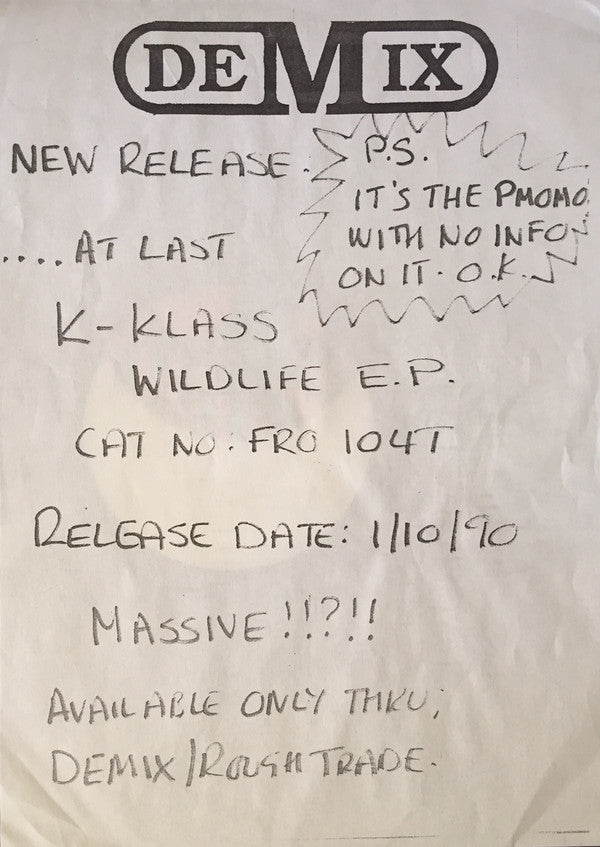 DEMIX
NEW RELEASE.
P.S.
IT'S THE PMOMO
WITH NO INFO
ON IT. O.K.
....AT LAST
K-KLASS
WILDLIFE E.P.
CAT NO: FRO 104T
RELEASE DATE: 1/10/90
MASSIVE!!?!!
AVAILABLE ONLY THRU;
DEMIX/ROUGH TRADE.